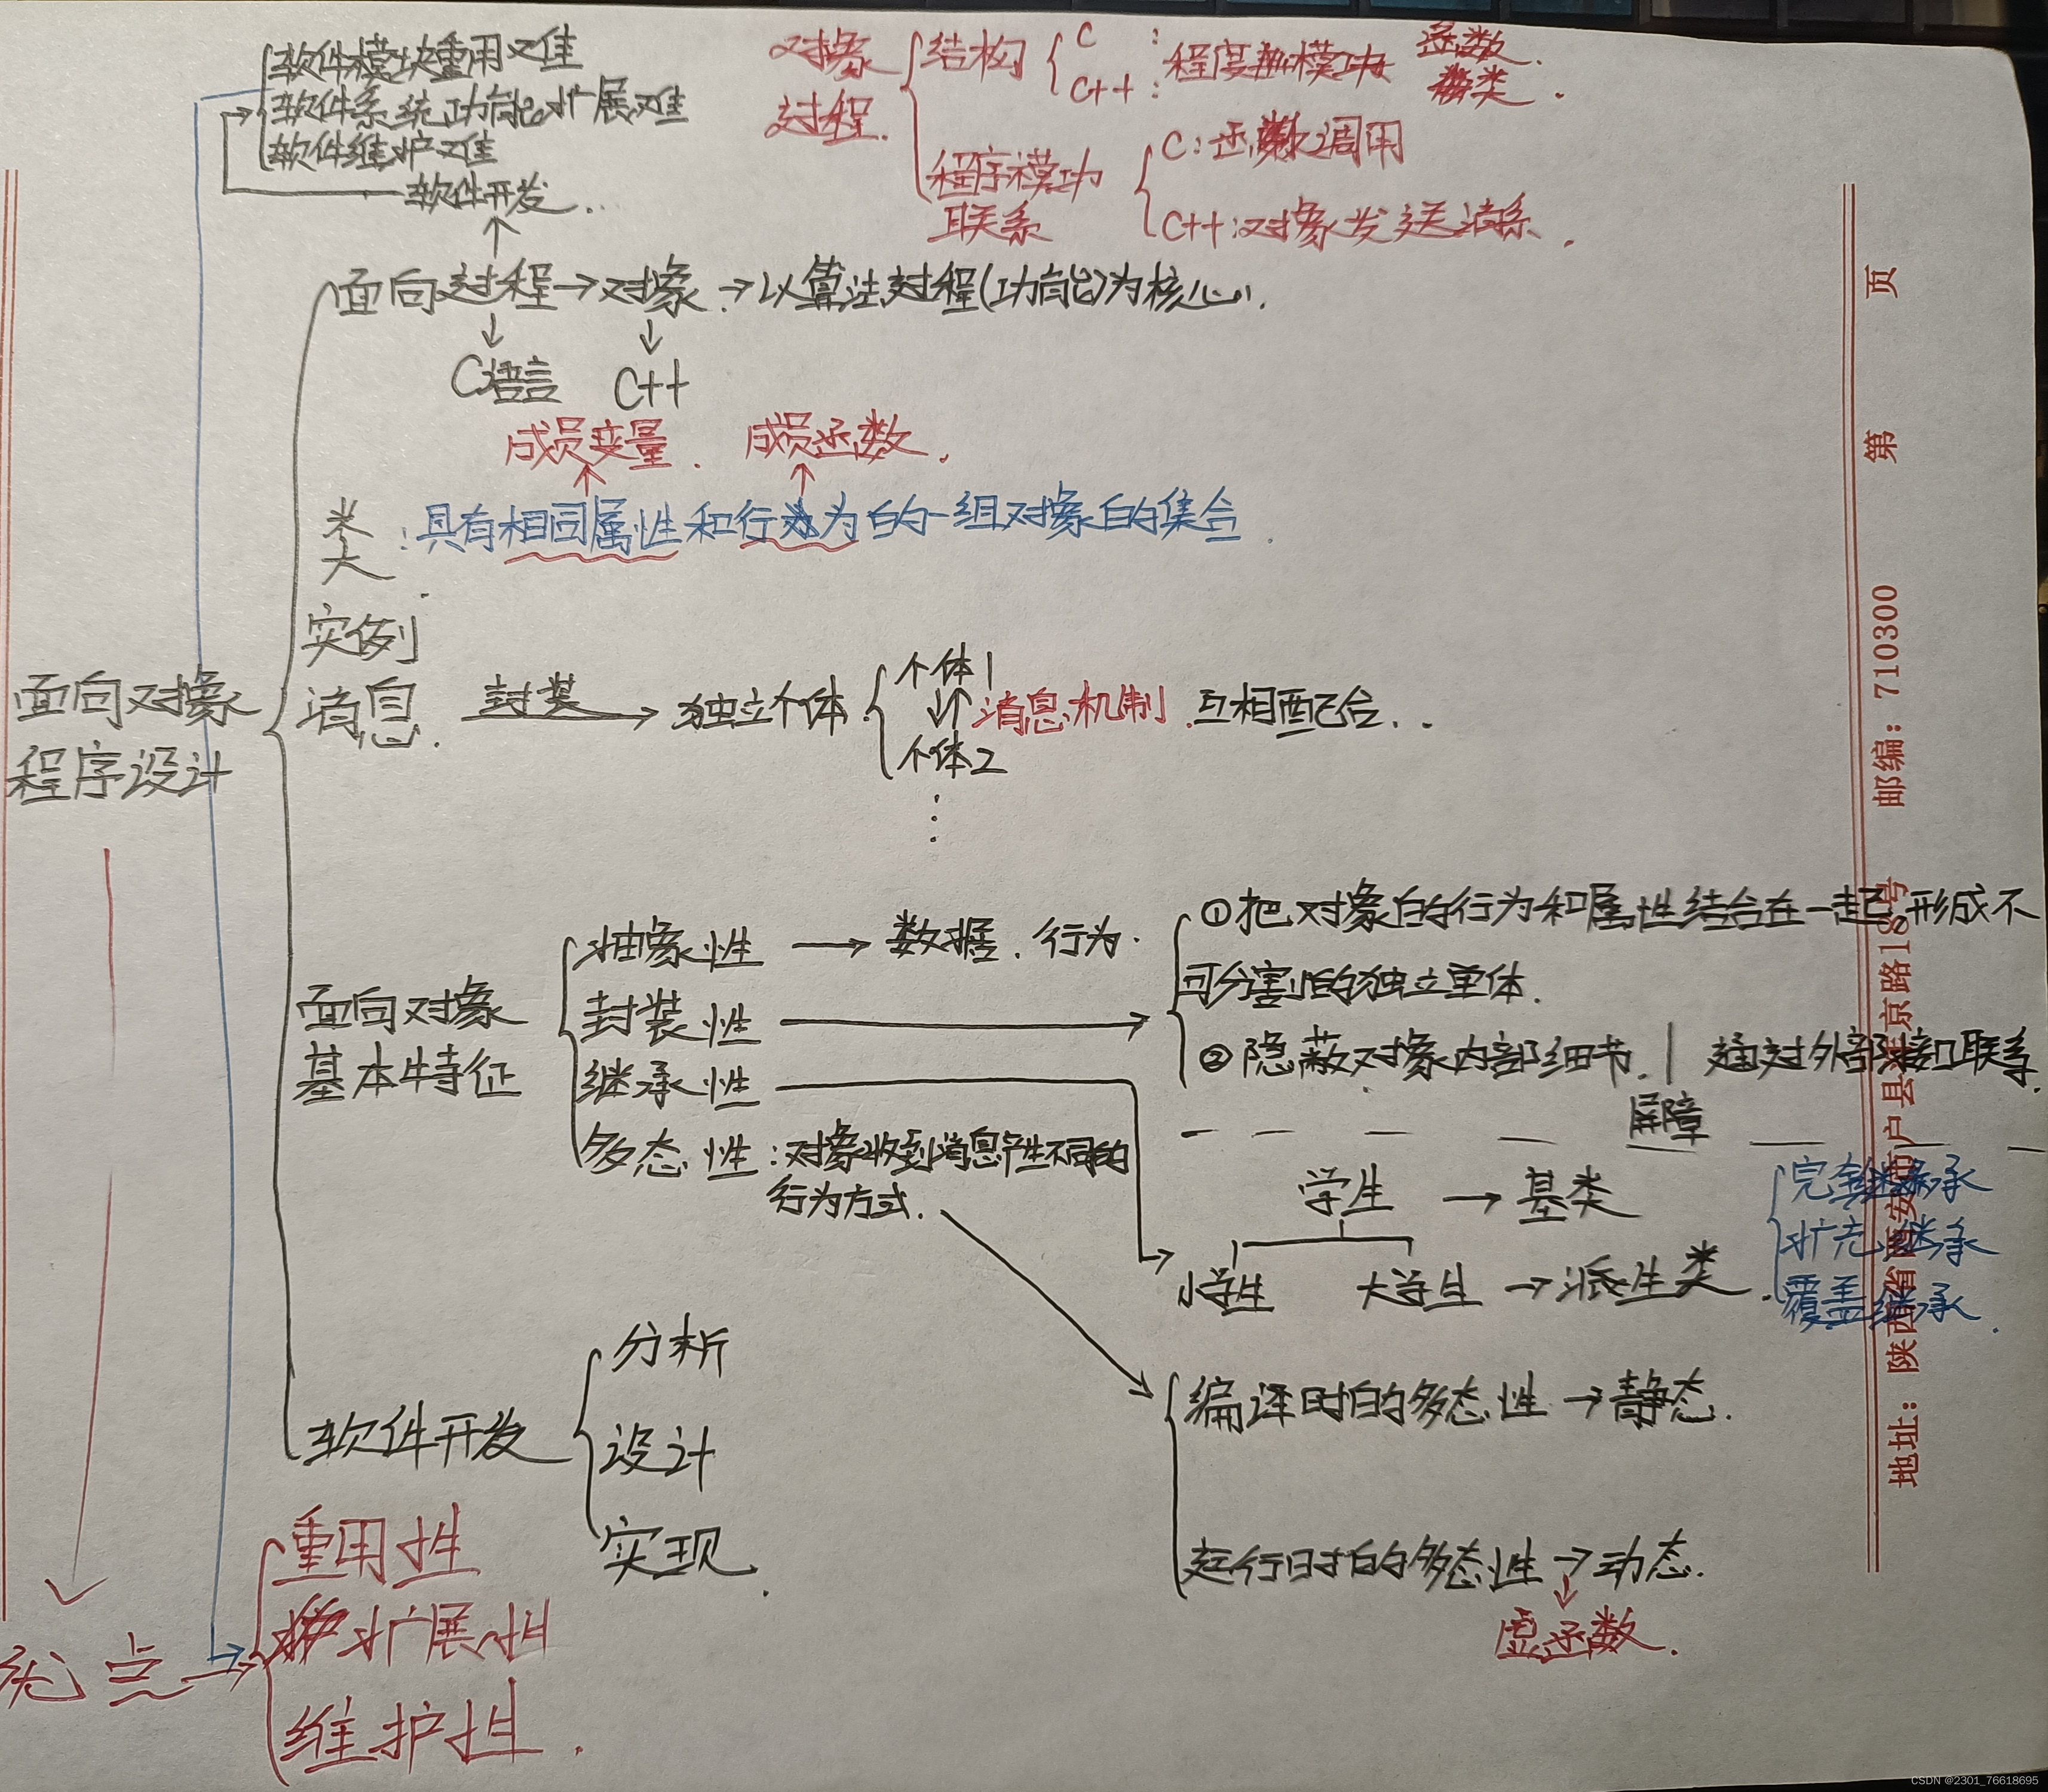 软件模块重用难
软件系统功能扩展难
软件维护难
软件开发.
对象
过程.
结构
C :
C++ :
程序模功
函数.
类.
程序模功
联系
C:函数调用
C++:对象发送消系.
面向过程→对象.→以算法过程(功能)为核心.
C语言 C++
成员变量. 成员函数.
类:具有相同属性和行为的一组对象的集合.
实例
消息. 封装→独立个体.
个体1
消息机制.互相配合..
个体2
面向对象
程序设计
面向对象
基本特征
抽象性→数据.行为.
封装性
继承性
多态性:对象收到消息产生不同的
行为方式.
①把对象的行为和属性结合在一起,形成不
可分割的独立主体.
②隐蔽对象内部细节.| 通过外部接口联系.
屏障
学生→基类
小学生 大学生→派生类.
完全继承
扩充继承
覆盖继承.
编译时的多态性→静态.
运行时的多态性→动态.
虚函数.
软件开发
分析
设计
实现.
优点→
重用性
扩展性
维护性.
地址:陕西省西安市户县 京路18号 邮编:710300 第 页
CSDN @2301_76618695